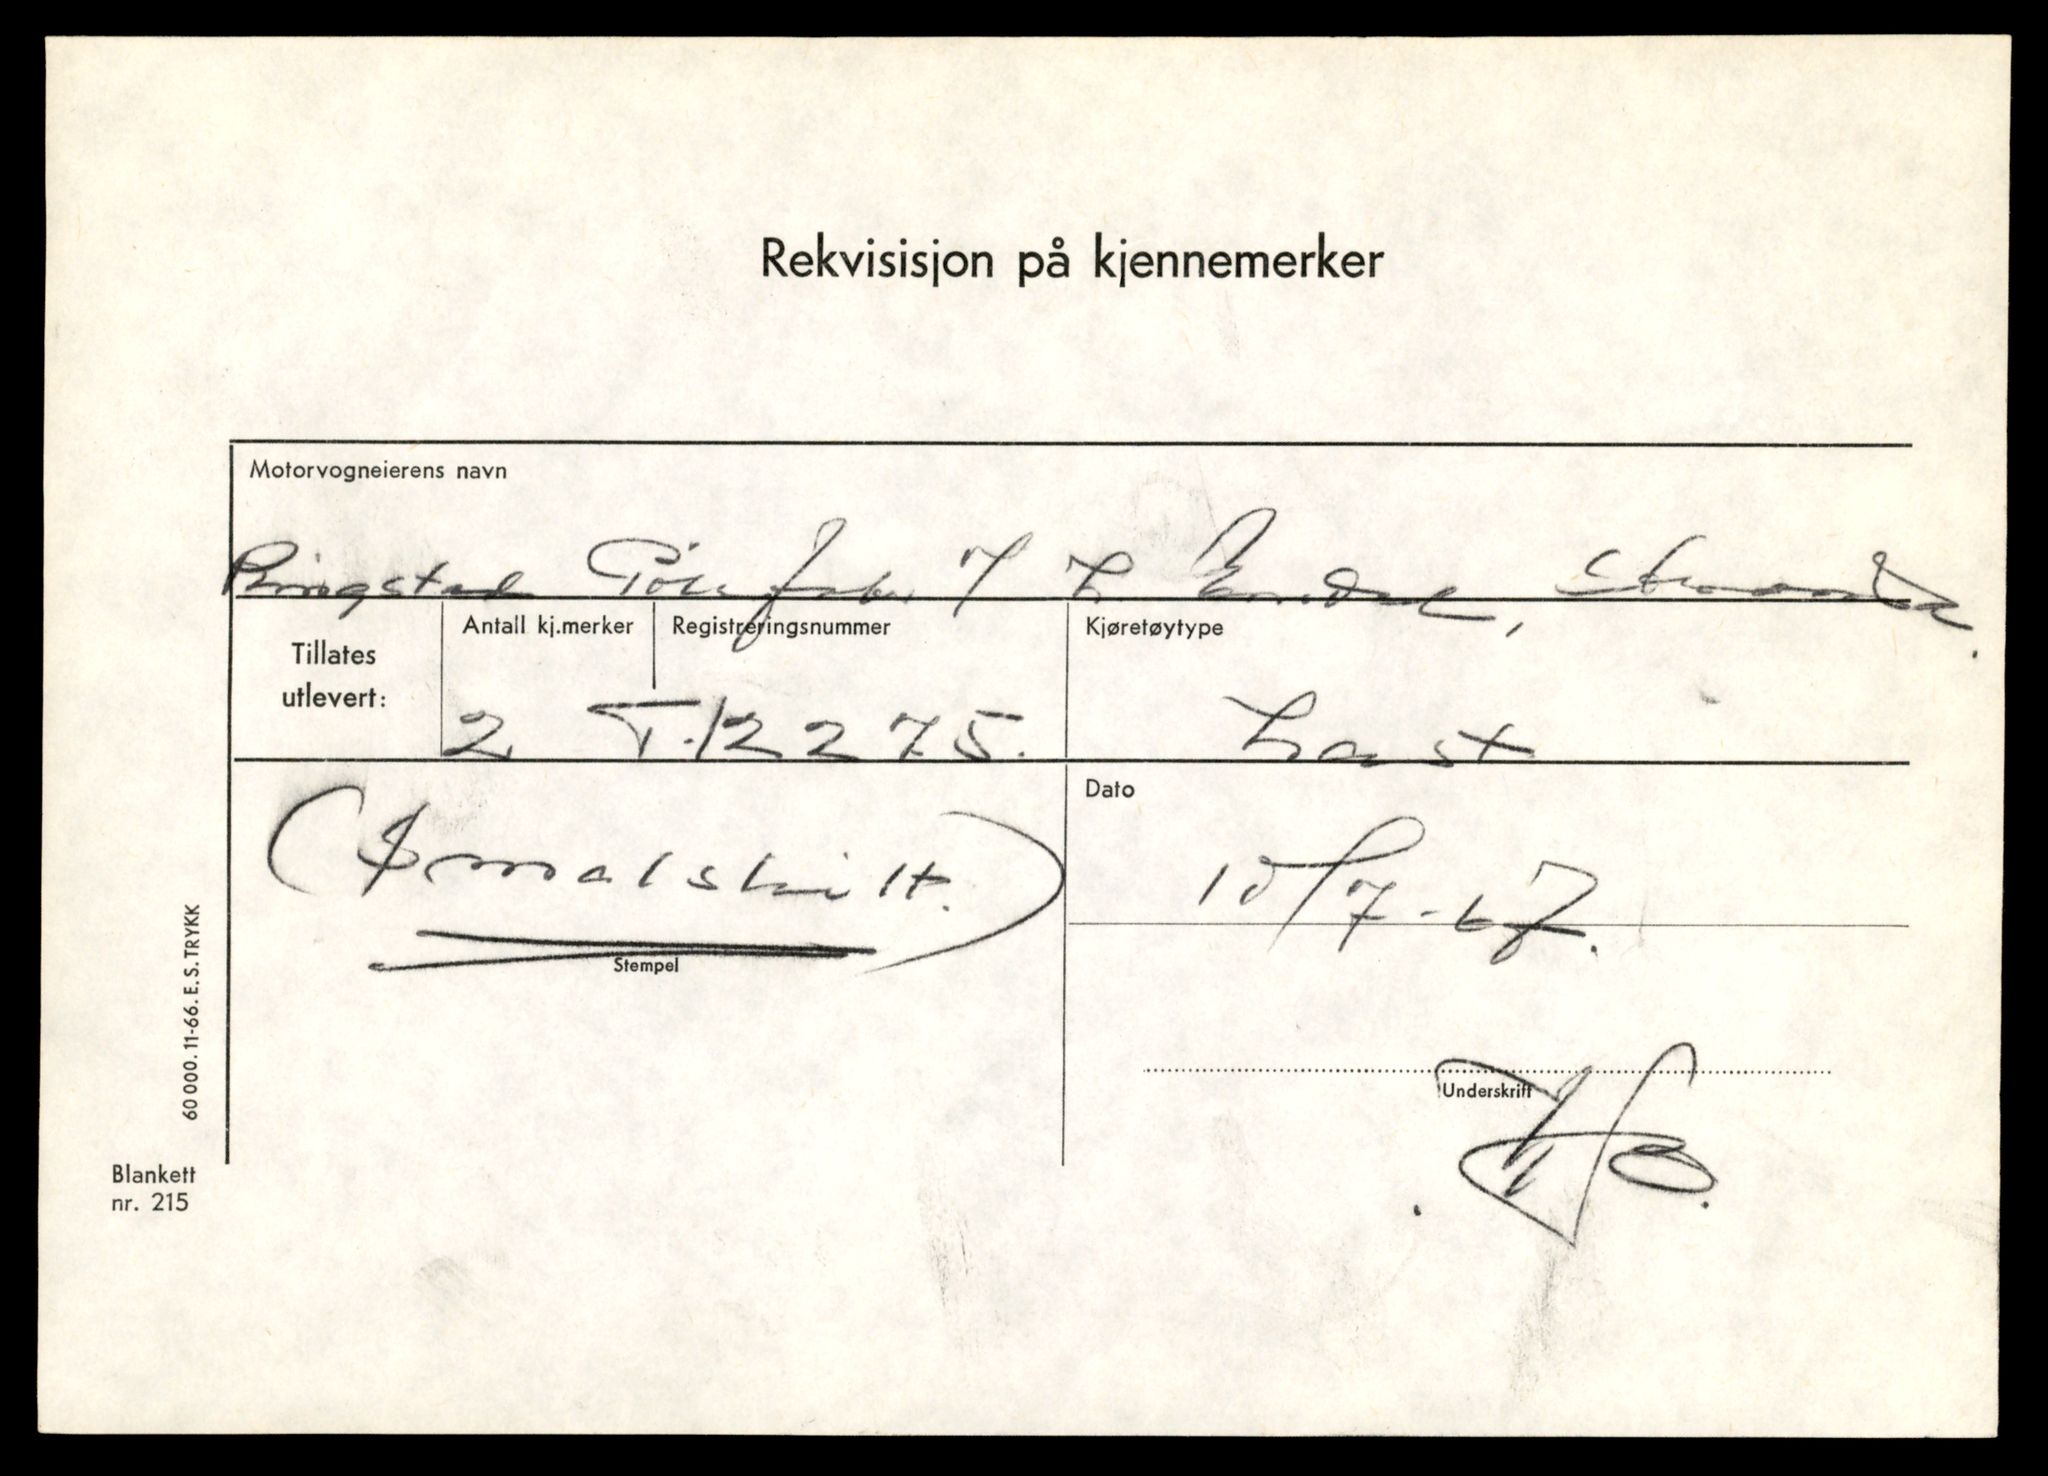 Rekvisisjon på kjennemerker
Motorvogneierens navn
Ringstad
Stranda.
Tillates utlevert:
Antall kj.merker
Registreringsnummer
Kjøretøytype
2 T.12275.
Last
(Smalskilt.)
Stempel
Dato
10/7-67.
Underskrift
60 000. 11-66. E. S. TRYKK
Blankett
nr. 215